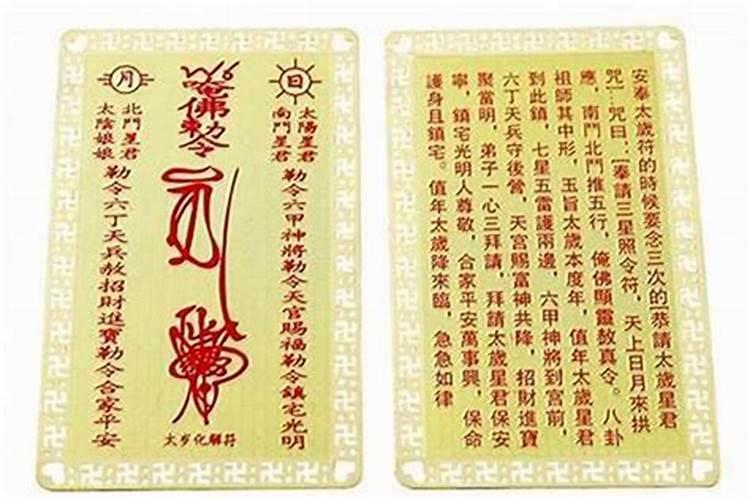 日
太陽星君
南鬥星君
勒令六甲神將勒令天官賜福勒令鎮宅光明
唵佛勅令
太岁化解符
月
北鬥星君
太陰娘娘
勒令六丁天兵敖招財進寶勒令合家平安
安奉太歲符的時候要念三次的[恭請太歲星君
咒]…咒曰:[奉請三星照令符，天上日月來拱
應，南鬥北鬥推五行，俺佛顯靈敖真令。八卦
祖師其中形，玉旨太歲本度年，值年太歲星君
到此鎮，七星五雷護兩邊，六甲神將到宮前，
六丁天兵守後營，天宮賜富神共降，招財進寶
聚當明，弟子一心三拜請，拜請太歲星君保安
寧，鎮宅光明人尊敬，合家平安萬事興，保命
護身且鎮宅。值年太歲降來臨，急急如律